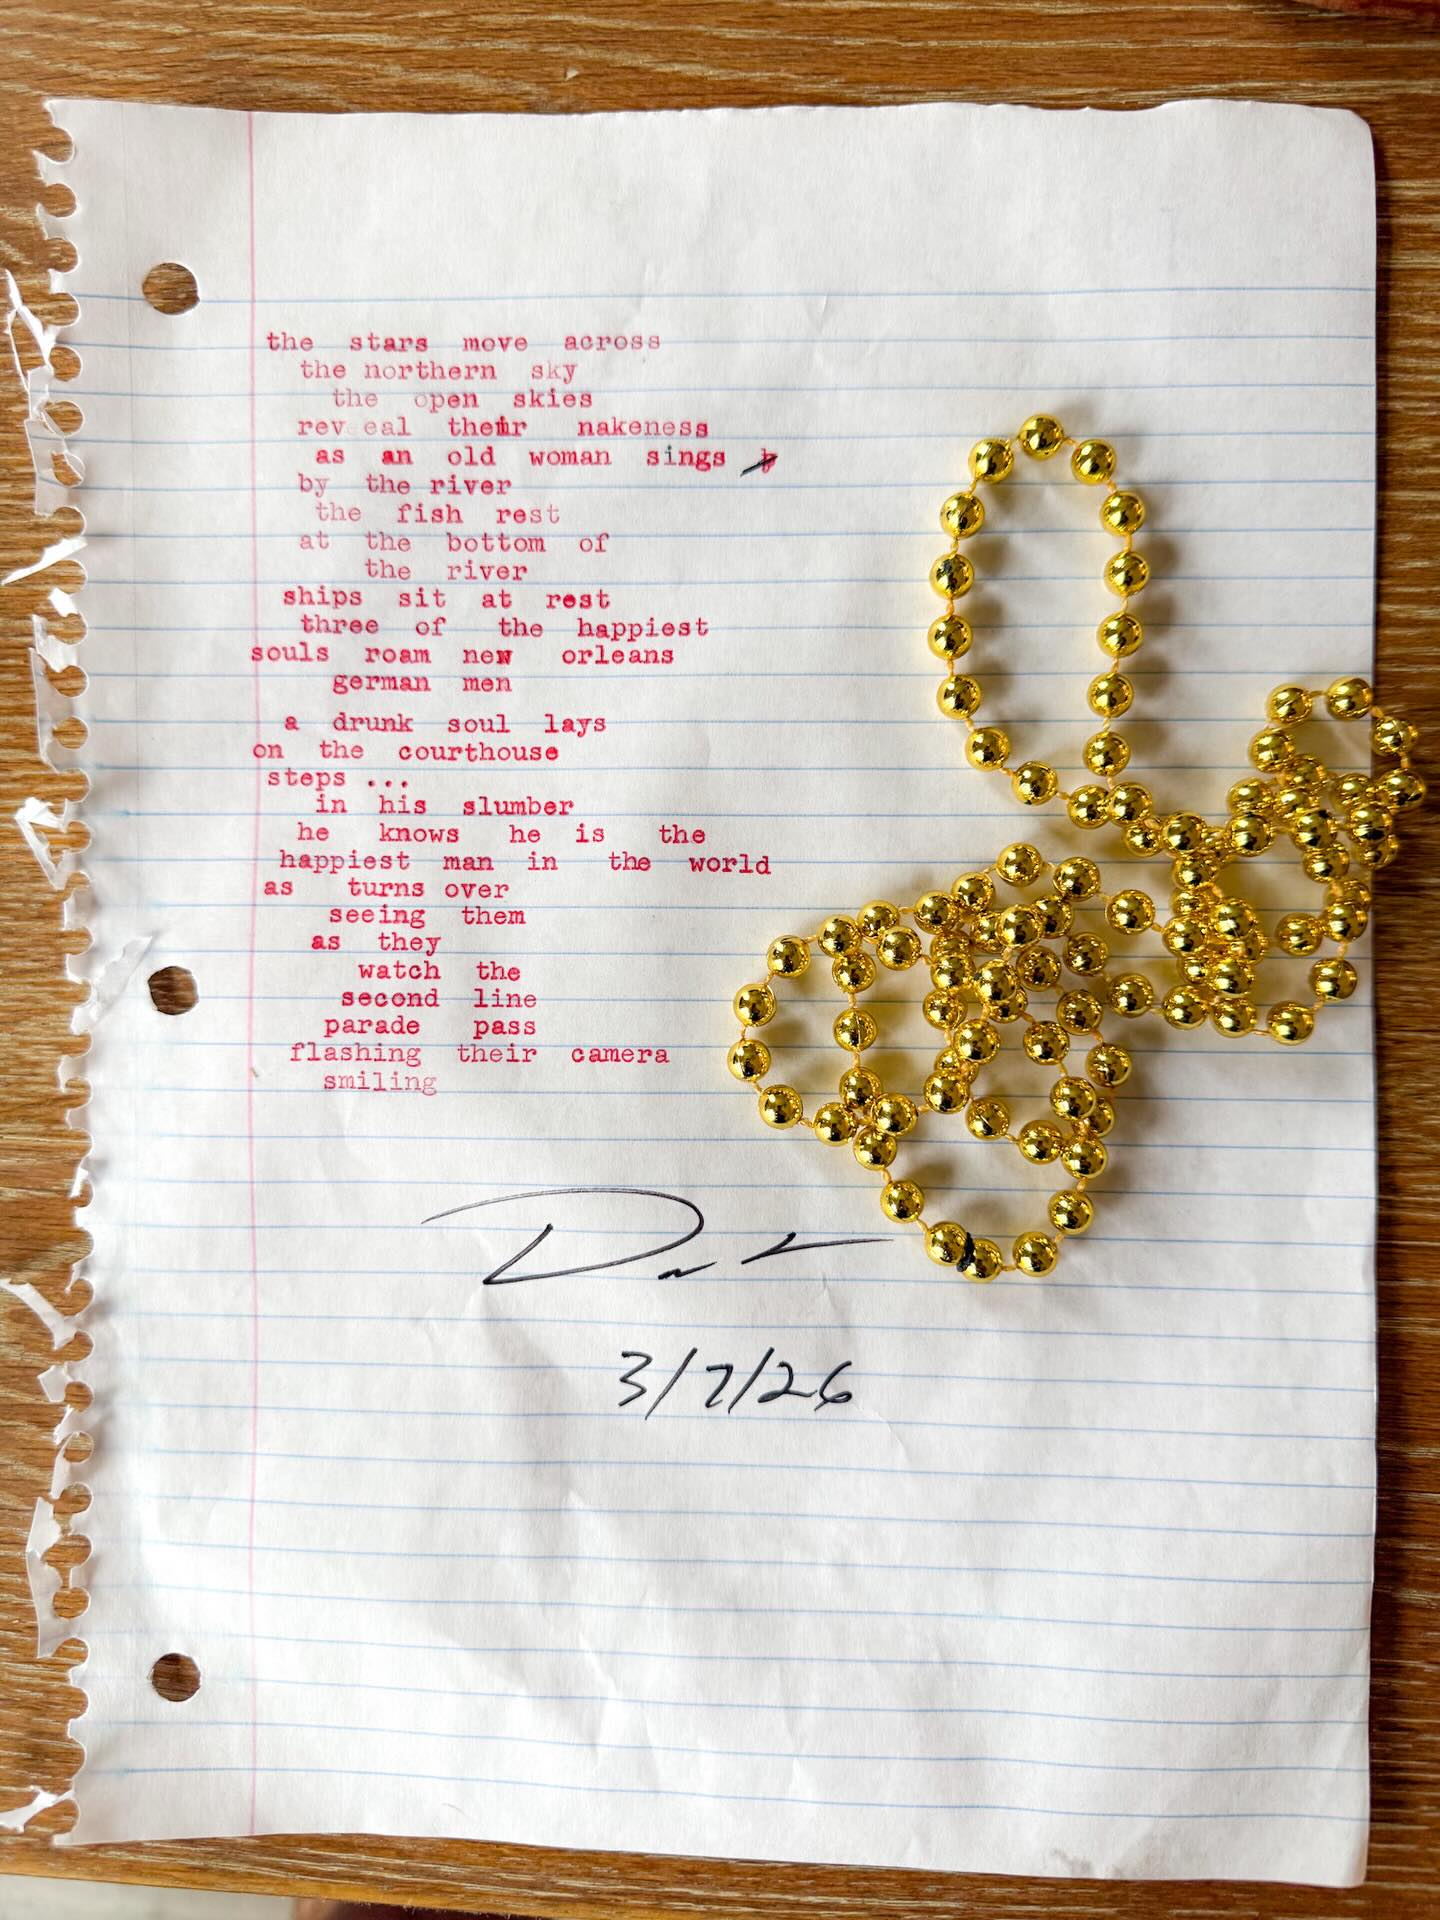 the stars move across
the northern sky
the open skies
reveal their nakeness
as an old woman sings
by the river
the fish rest
at the bottom of
the river
ships sit at rest
three of the happiest
souls roam new orleans
german men
a drunk soul lays
on the courthouse
steps ...
in his slumber
he knows he is the
happiest man in the world
as turns over
seeing them
as they
watch the
second line
parade pass
flashing their camera
smiling
3/7/26